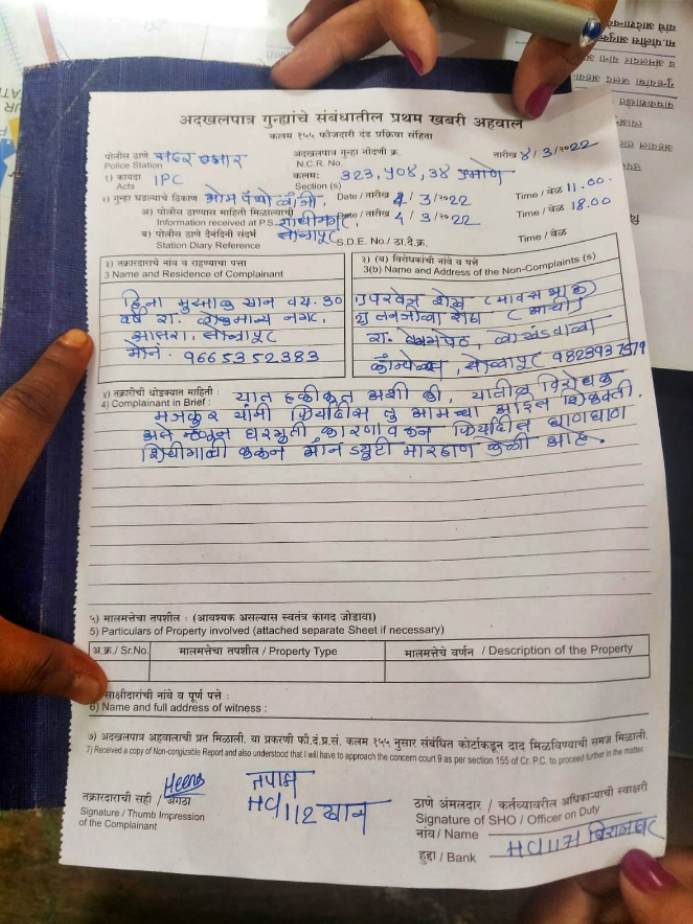 अदखलपात्र गुन्ह्यांचे संबंधातील प्रथम खबरी अहवाल
कलम १५५ फौजदारी दंड प्रक्रिया संहिता
पोलीस ठाणे सदर बझार अदखलपात्र गुन्हा नोंदणी क्र. तारीख ४/३/२०२२
Police Station N.C.R. No.
१) कायदा IPC कलम: 323, ५०४, 34 प्रमाणे
Acts Section (s)
२) गुन्हा घडल्याचे ठिकाण Date / तारीख 4/3/२०22 Time / वेळ 11.00.
अ) पोलीस ठाण्यास माहिती मिळाल्याची Date / तारीख 4/3/२०22 Time / वेळ 18.00
Information received at P.S.
ब) पोलीस ठाणे दैनंदिनी संदर्भ सोलापूर S.D.E. No./ ठा.दै.क्र. Time / वेळ
Station Diary Reference
३) तक्रारदाराचे नांव व राहण्याचा पत्ता ३) (ब) विरोधकांची नांवे व पत्ते
3 Name and Residence of Complainant 3(b) Name and Address of the Non-Complaints (s)
हिना मुस्ताक खान वय. 30
वर्षे रा. लोकमान्य नगर,
आसरा, सोलापूर
मोन. 9665352383
रा. लोखंडवाला
कॉम्प्लेक्स, सोलापूर 9823937579
४) तक्रारीची थोडक्यात माहिती : यात हकीकत अशी की, यातील विरोधक
4) Complainant in Brief :
मजकुर यांनी फिर्यादीस तु आमच्या आईस शिकवती.
असे म्हणून घरगुती कारणावरून फिर्यादीस घाणघाण
शिवीगाळी करून मारहाण केली आहे.
५) मालमत्तेचा तपशील : (आवश्यक असल्यास स्वतंत्र कागद जोडावा)
5) Particulars of Property involved (attached separate Sheet if necessary)
अ.क्र./ Sr.No. मालमत्तेचा तपशील / Property Type मालमत्तेचे वर्णन / Description of the Property
साक्षीदारांची नांवे व पूर्ण पत्ते :
6) Name and full address of witness :
७) अदखलपात्र अहवालाची प्रत मिळाली. या प्रकरणी फौ.दं.प्र.सं. कलम १५५ नुसार संबंधित कोर्टाकडून दाद मिळविण्याची समज मिळाली.
7) Received a copy of Non-congizable Report and also understood that I will have to approach the concern court 9 as per section 155 of Cr. P.C. to proceed further in the matter.
Heena तपास
तक्रारदाराची सही / अंगठा HC/112 खान
Signature / Thumb Impression
of the Complainant
ठाणे अंमलदार / कर्तव्यावरील अधिकाऱ्याची स्वाक्षरी
Signature of SHO / Officer on Duty
नांव / Name
हुद्दा / Bank